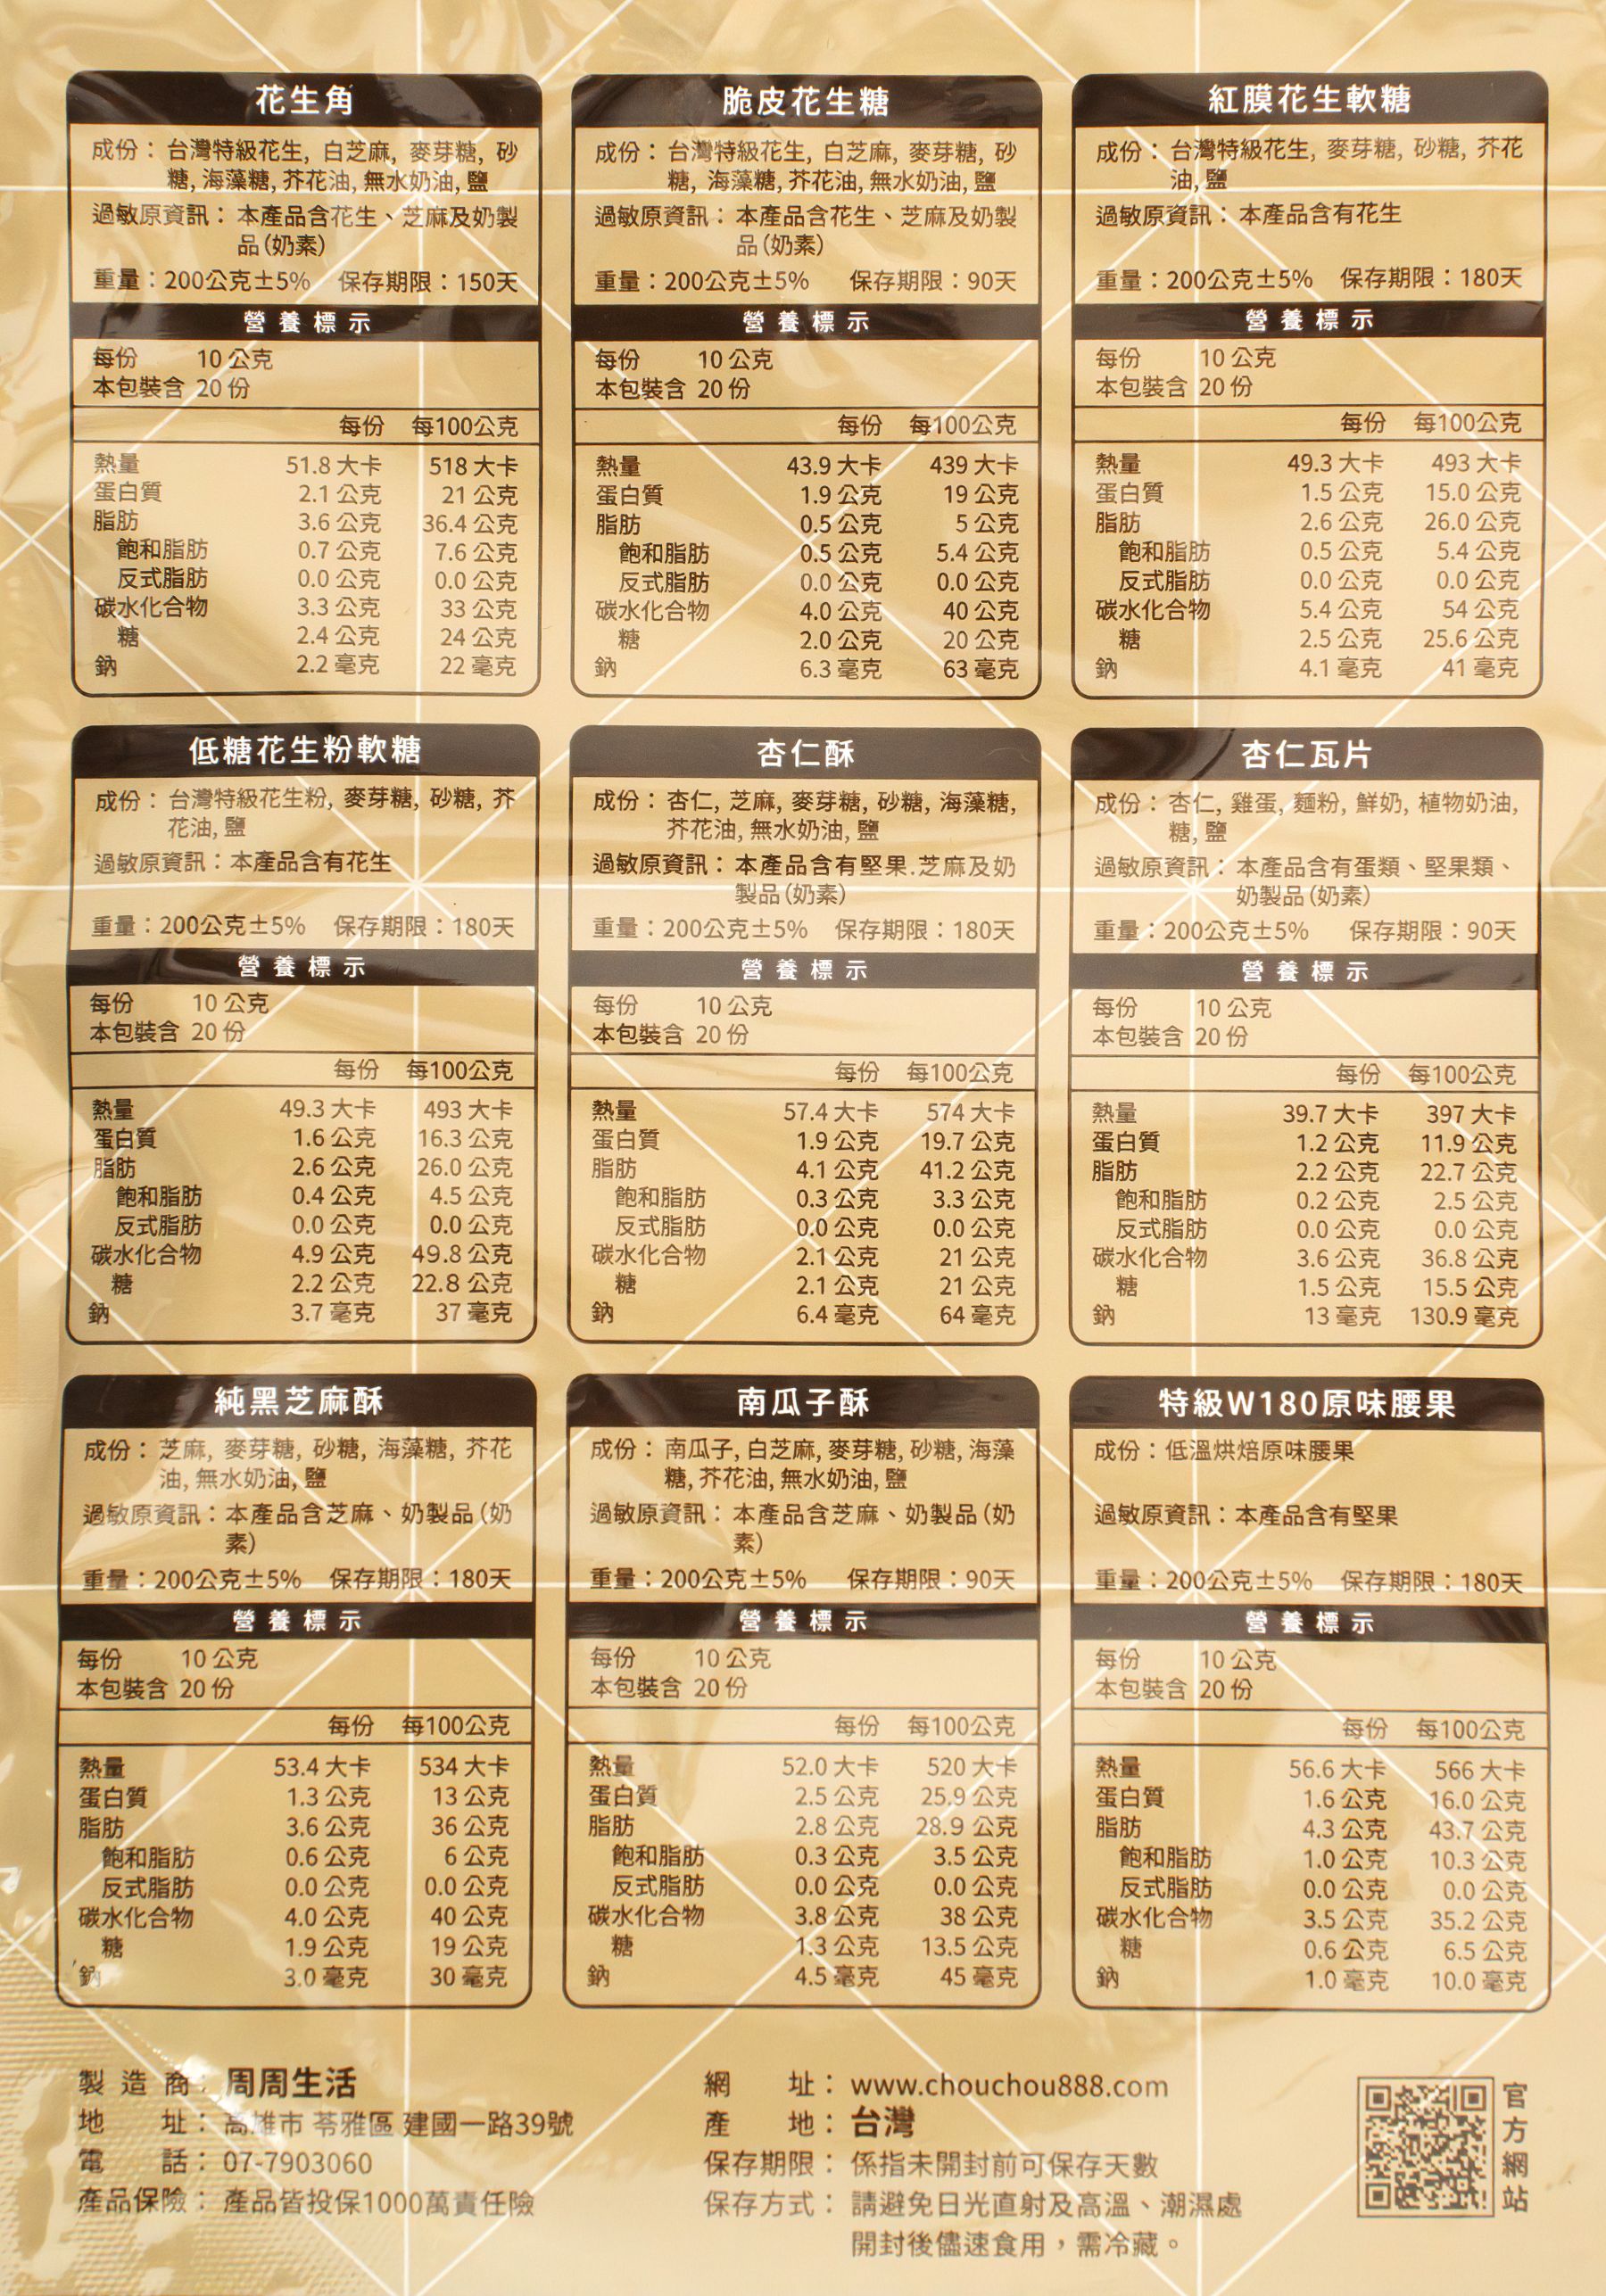 花生角
成份：台灣特級花生, 白芝麻, 麥芽糖, 砂
糖, 海藻糖, 芥花油, 無水奶油, 鹽
過敏原資訊：本產品含花生、芝麻及奶製
品(奶素)
重量：200公克±5% 保存期限：150天
營養標示
每份 10 公克
本包裝含 20 份
每份 每100公克
熱量 51.8 大卡 518 大卡
蛋白質 2.1 公克 21 公克
脂肪 3.6 公克 36.4 公克
飽和脂肪 0.7 公克 7.6 公克
反式脂肪 0.0 公克 0.0 公克
碳水化合物 3.3 公克 33 公克
糖 2.4 公克 24 公克
鈉 2.2 毫克 22 毫克
脆皮花生糖
成份：台灣特級花生, 白芝麻, 麥芽糖, 砂
糖, 海藻糖, 芥花油, 無水奶油, 鹽
過敏原資訊：本產品含花生、芝麻及奶製
品(奶素)
重量：200公克±5% 保存期限：90天
營養標示
每份 10 公克
本包裝含 20 份
每份 每100公克
熱量 43.9 大卡 439 大卡
蛋白質 1.9 公克 19 公克
脂肪 0.5 公克 5 公克
飽和脂肪 0.5 公克 5.4 公克
反式脂肪 0.0 公克 0.0 公克
碳水化合物 4.0 公克 40 公克
糖 2.0 公克 20 公克
鈉 6.3 毫克 63 毫克
紅膜花生軟糖
成份：台灣特級花生, 麥芽糖, 砂糖, 芥花
油, 鹽
過敏原資訊：本產品含有花生
重量：200公克±5% 保存期限：180天
營養標示
每份 10 公克
本包裝含 20 份
每份 每100公克
熱量 49.3 大卡 493 大卡
蛋白質 1.5 公克 15.0 公克
脂肪 2.6 公克 26.0 公克
飽和脂肪 0.5 公克 5.4 公克
反式脂肪 0.0 公克 0.0 公克
碳水化合物 5.4 公克 54 公克
糖 2.5 公克 25.6 公克
鈉 4.1 毫克 41 毫克
低糖花生粉軟糖
成份：台灣特級花生粉, 麥芽糖, 砂糖, 芥
花油, 鹽
過敏原資訊：本產品含有花生
重量：200公克±5% 保存期限：180天
營養標示
每份 10 公克
本包裝含 20 份
每份 每100公克
熱量 49.3 大卡 493 大卡
蛋白質 1.6 公克 16.3 公克
脂肪 2.6 公克 26.0 公克
飽和脂肪 0.4 公克 4.5 公克
反式脂肪 0.0 公克 0.0 公克
碳水化合物 4.9 公克 49.8 公克
糖 2.2 公克 22.8 公克
鈉 3.7 毫克 37 毫克
杏仁酥
成份：杏仁, 芝麻, 麥芽糖, 砂糖, 海藻糖,
芥花油, 無水奶油, 鹽
過敏原資訊：本產品含有堅果.芝麻及奶
製品(奶素)
重量：200公克±5% 保存期限：180天
營養標示
每份 10 公克
本包裝含 20 份
每份 每100公克
熱量 57.4 大卡 574 大卡
蛋白質 1.9 公克 19.7 公克
脂肪 4.1 公克 41.2 公克
飽和脂肪 0.3 公克 3.3 公克
反式脂肪 0.0 公克 0.0 公克
碳水化合物 2.1 公克 21 公克
糖 2.1 公克 21 公克
鈉 6.4 毫克 64 毫克
杏仁瓦片
成份：杏仁, 雞蛋, 麵粉, 鮮奶, 植物奶油,
糖, 鹽
過敏原資訊：本產品含有蛋類、堅果類、
奶製品(奶素)
重量：200公克±5% 保存期限：90天
營養標示
每份 10 公克
本包裝含 20 份
每份 每100公克
熱量 39.7 大卡 397 大卡
蛋白質 1.2 公克 11.9 公克
脂肪 2.2 公克 22.7 公克
飽和脂肪 0.2 公克 2.5 公克
反式脂肪 0.0 公克 0.0 公克
碳水化合物 3.6 公克 36.8 公克
糖 1.5 公克 15.5 公克
鈉 13 毫克 130.9 毫克
純黑芝麻酥
成份：芝麻, 麥芽糖, 砂糖, 海藻糖, 芥花
油, 無水奶油, 鹽
過敏原資訊：本產品含芝麻、奶製品(奶
素)
重量：200公克±5% 保存期限：180天
營養標示
每份 10 公克
本包裝含 20 份
每份 每100公克
熱量 53.4 大卡 534 大卡
蛋白質 1.3 公克 13 公克
脂肪 3.6 公克 36 公克
飽和脂肪 0.6 公克 6 公克
反式脂肪 0.0 公克 0.0 公克
碳水化合物 4.0 公克 40 公克
糖 1.9 公克 19 公克
鈉 3.0 毫克 30 毫克
南瓜子酥
成份：南瓜子, 白芝麻, 麥芽糖, 砂糖, 海藻
糖, 芥花油, 無水奶油, 鹽
過敏原資訊：本產品含芝麻、奶製品(奶
素)
重量：200公克±5% 保存期限：90天
營養標示
每份 10 公克
本包裝含 20 份
每份 每100公克
熱量 52.0 大卡 520 大卡
蛋白質 2.5 公克 25.9 公克
脂肪 2.8 公克 28.9 公克
飽和脂肪 0.3 公克 3.5 公克
反式脂肪 0.0 公克 0.0 公克
碳水化合物 3.8 公克 38 公克
糖 1.3 公克 13.5 公克
鈉 4.5 毫克 45 毫克
特級W180原味腰果
成份：低溫烘焙原味腰果
過敏原資訊：本產品含有堅果
重量：200公克±5% 保存期限：180天
營養標示
每份 10 公克
本包裝含 20 份
每份 每100公克
熱量 56.6 大卡 566 大卡
蛋白質 1.6 公克 16.0 公克
脂肪 4.3 公克 43.7 公克
飽和脂肪 1.0 公克 10.3 公克
反式脂肪 0.0 公克 0.0 公克
碳水化合物 3.5 公克 35.2 公克
糖 0.6 公克 6.5 公克
鈉 1.0 毫克 10.0 毫克
製造商：周周生活
地址：高雄市 苓雅區 建國一路39號
電話：07-7903060
產品保險：產品皆投保1000萬責任險
網址：www.chouchou888.com
產地：台灣
保存期限：係指未開封前可保存天數
保存方式：請避免日光直射及高溫、潮濕處
開封後儘速食用，需冷藏。
官方網站